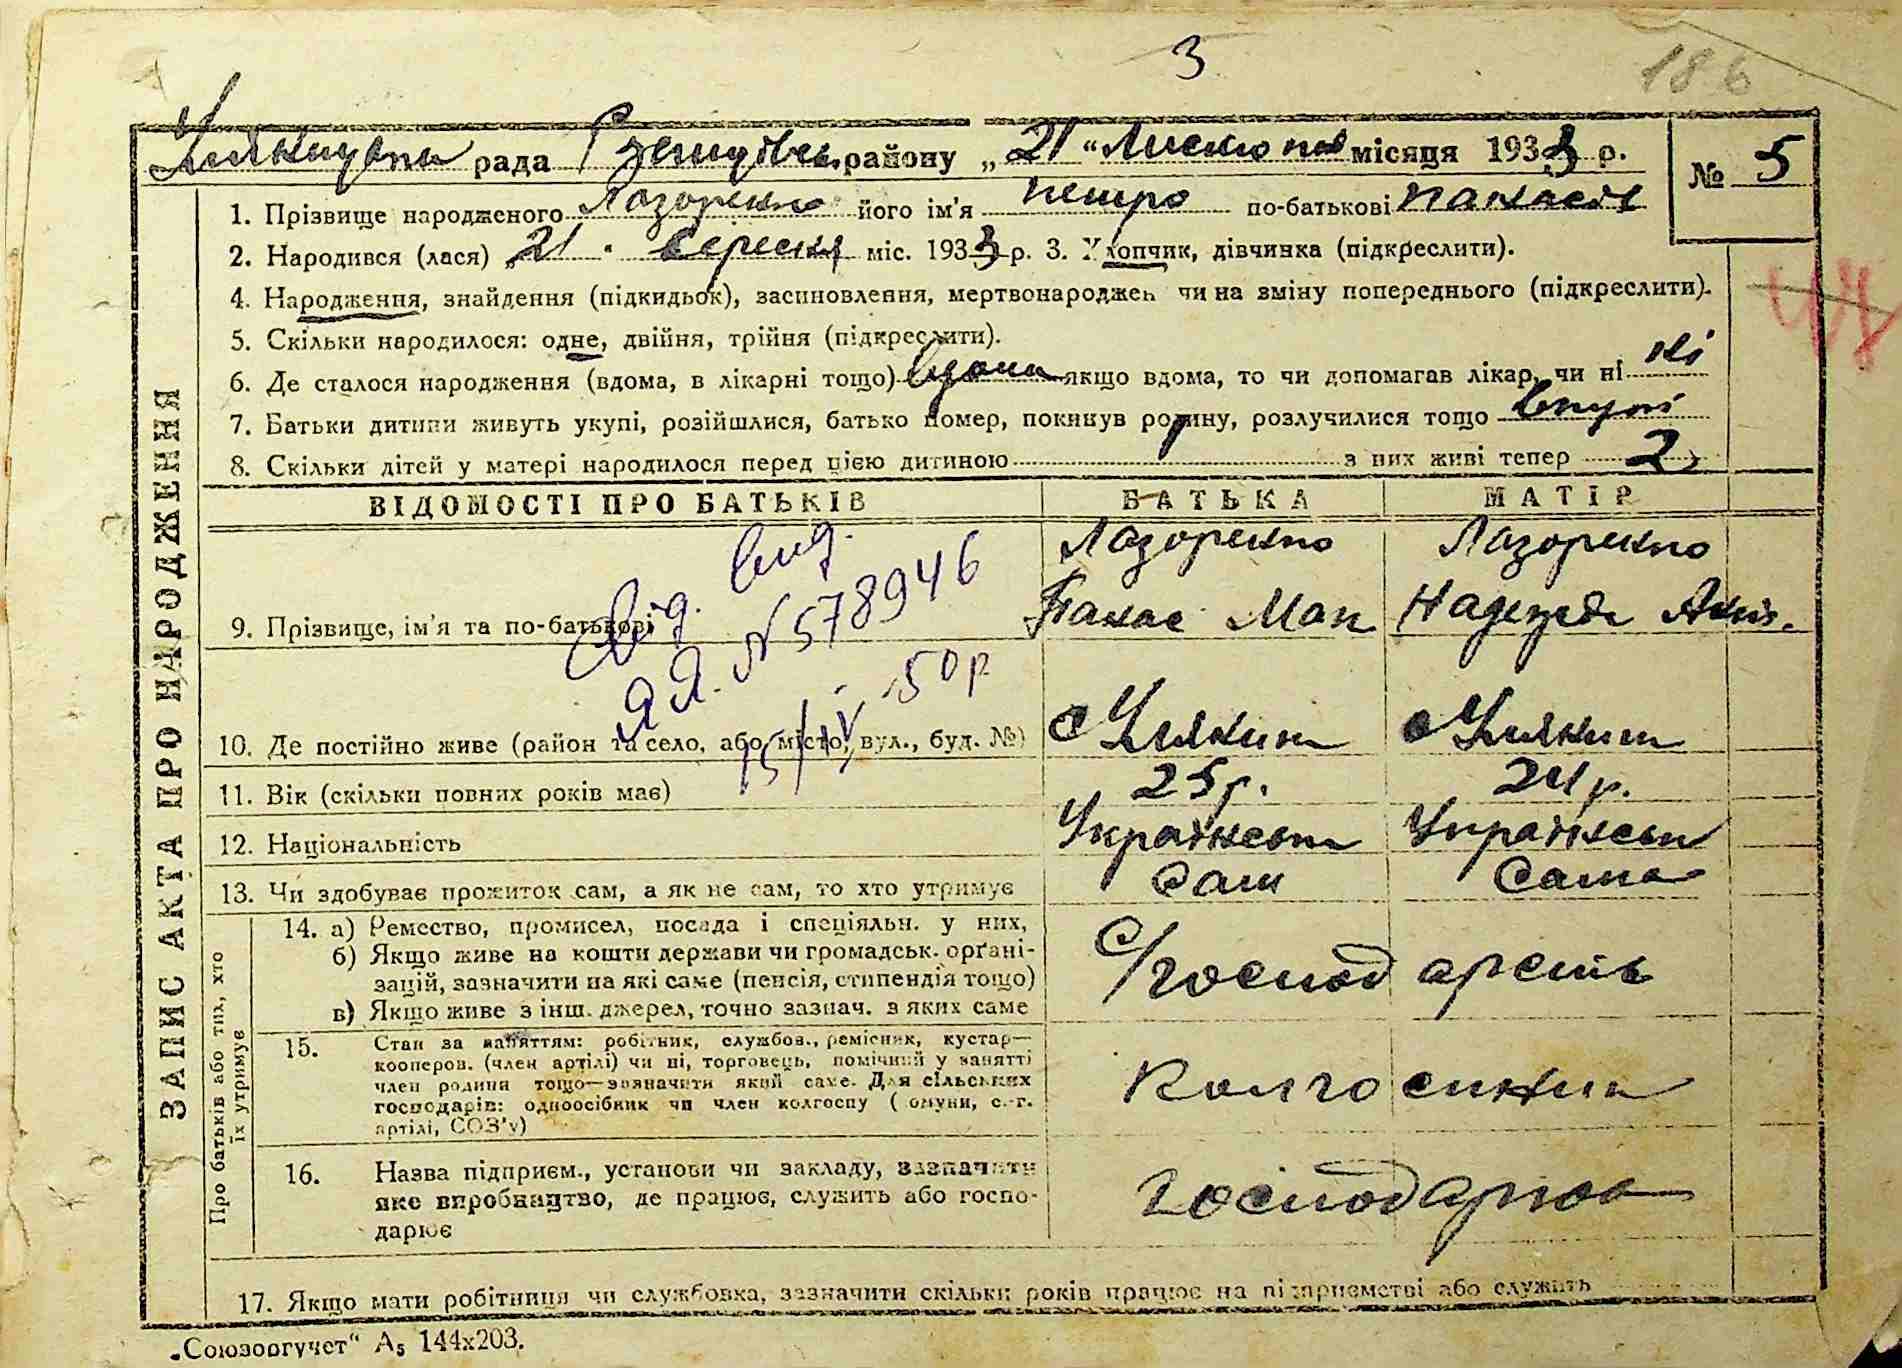 3
186
рада району „21“ Листопад місяця 1933 р. № 5
ЗАПИС АКТА ПРО НАРОДЖЕННЯ
1. Прізвище народженого Лазоренко його ім'я Петро по-батькові Панасов
2. Народився (лася) „21“ вересня міс. 1933 р. 3. Хлопчик, дівчинка (підкреслити).
4. Народження, знайдення (підкидьок), засиновлення, мертвонароджен чи на зміну попереднього (підкреслити).
5. Скільки народилося: одне, двійня, трійня (підкреслити).
6. Де сталося народження (вдома, в лікарні тощо) вдома якщо вдома, то чи допомагав лікар, чи ні ні
7. Батьки дитини живуть укупі, розійшлися, батько помер, покинув родину, розлучилися тощо вкупі
8. Скільки дітей у матері народилося перед цією дитиною з них живі тепер 2
ВІДОМОСТІ ПРО БАТЬКІВ БАТЬКА МАТІР
Лазоренко Лазоренко
9. Прізвище, ім'я та по-батькові Панас Мак Надежда
Від. вид.
ЯЯ. N 578946
15/IV-50р.
10. Де постійно живе (район та село, або місто, вул., буд. №)
11. Вік (скільки повних років має) 25 р. 24 р.
12. Національність
13. Чи здобуває прожиток сам, а як не сам, то хто утримує Сам Сама
Про батьків або тих, хто
їх утримує
14. а) Ремество, промисел, посада і спеціяльн. у них,
б) Якщо живе на кошти держави чи громадськ. орґані-
зацій, зазначити на які саме (пенсія, стипендія тощо)
в) Якщо живе з інш. джерел, точно зазнач. з яких саме
С/господарсть
15. Стан за заняттям: робітник, службов., ремісник, кустар—
кооперов. (член артілі) чи ні, торговець, помічний у занятті
член родини тощо—зазначити який саме. Для сільських
господарів: одноосібник чи член колгоспу (омуни, с.-г.
артілі, СОЗ'у)
Колгоспник
16. Назва підприєм., установи чи закладу, зазначити
яке виробництво, де працює, служить або госпо-
дарює
17. Якщо мати робітниця чи службовка, зазначити скільки років працює на підприємстві або служить
„Союзоргучет“ А5 144х203.